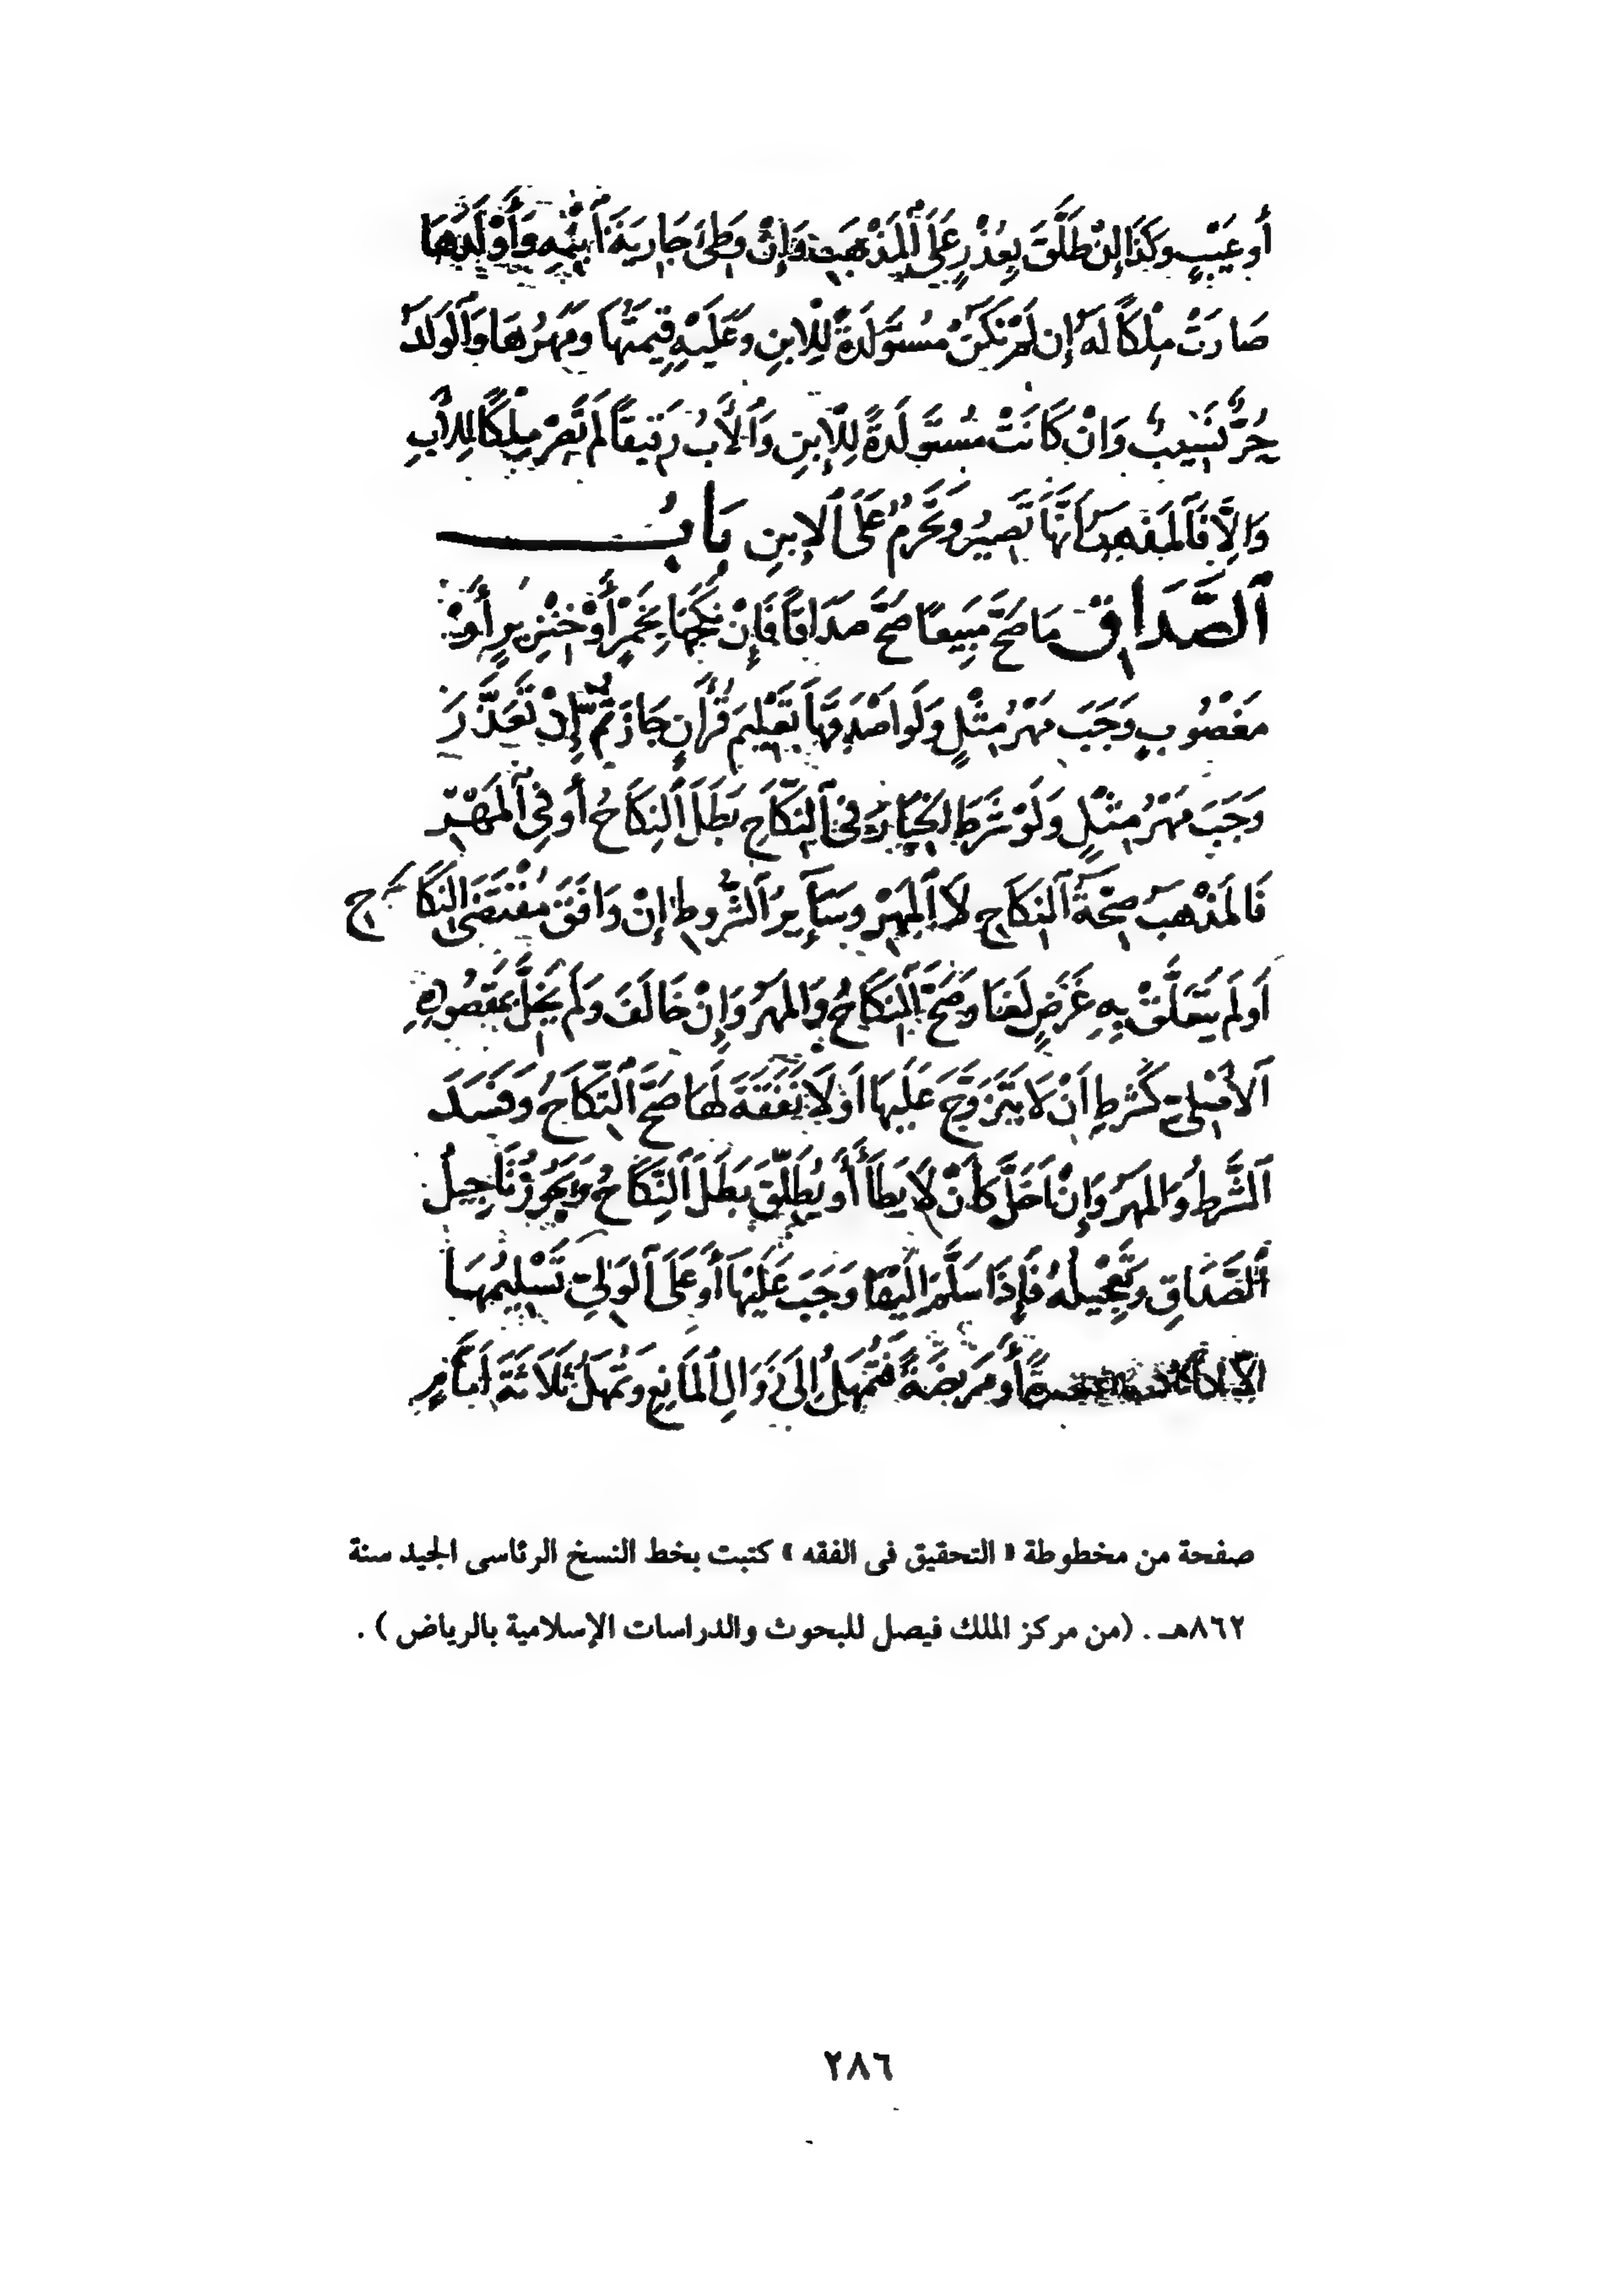 أَو عَيْبٍ وَكَذَا إِنْ طَلَّقَ بِعُذْرٍ عَلَى ٱلْمَذْهَبِ وَإِنْ وَطِئَ جَارِيَةَ ٱبْنِهِ وَأَوْلَدَهَا
صَارَتْ مِلْكًا لَهُ إِن لَمْ تَكُنْ مُسْتَوْلَدَةً لِلِابنِ وَعَلَيْهِ قِيمَتُهَا وَمَهْرُهَا وَٱلْوَلَدُ
حُرٌّ نَسِيبٌ وَإنْ كَانَتْ مُسْتَوْلَدَةً لِلِابنِ وَٱلْأَبُ رَقِيقًا لَمْ تَصِرْ مِلْكًا لِلأَبِ
وَإِلَّا فَٱلمَذْهَبُ أَنَّهَا تَصِيرُ وَتَحْرُمُ عَلَى ٱلِابنِ بَابُ
ٱلصَّدَاقِ مَا صَحَّ مَبِيعًا صَحَّ صَدَاقًا فَإِنْ نَكَحَهَا بِخَمْرٍ أَوْ خِنْزِيرٍ أَوْ
مَغْصُوبٍ وَجَبَ مَهْرُ مِثْلٍ وَلَو اصْدَقَهَا تَعْلِيمَ قُرْأَنٍ جَازَ ثُمَّ إِنْ تَعَذَّرَ
وَجَبَ مَهْرُ مِثْلٍ وَلَوْ شَرَطَ الخِيَارَ فى ٱلنِّكَاحِ بَطَلَ ٱلنِكَاحُ أَو فِي ٱلمَهْرِ
فَالمَذْهَبُ صِحَّةُ ٱلنِكَاحِ لَا ٱلمَهْرِ وَسَآيِرُ ٱلشُّرُوطِ إِنْ وَافَقَ مُقْتَضَى النِكَاحِ
اَو لَم يَتَعَلَّقْ بِهِ غَرَضٍ لَغَا وَصَحَّ ٱلنِكَاحُ وَالمَهْرُ وَإِنْ خَالَفَ وَلَم يُخِلَّ بمَقْصُودِهِ
ٱلاصْلِيّ كَشَرطِ اَنْ لَا يَتَزَوَّجَ عَلَيهَا اَوْ لَا نَفَقَةَ لَهَا صَحَّ ٱلنِّكَاحُ وَفَسَدَ
ٱلشَّرطُ وَالمَهرُ وَإِنْ اَخَلَّ كَأَنْ لَا يَطَأَ أَو يُطَلِّقَ بَطَلَ ٱلنِّكَاحُ وَيَجُوزُ تَاجِيلُ
ٱلصَّدَاقِ وَتَعْجِيلُهُ فَإِذَا سَلَّمَ إلَيْهَا وَجَبَ عَلَيْهَا أَو عَلَى ٱلوَلِيّ تَسْلِيمُهَا
أَو مَرِيضَةً فَتُمْهَلُ إِلَى زَوَالِ ٱلمَانِعِ وَتُمْهَلُ ثَلَاثَةَ اَيَّامٍ
صفحة من مخطوطة « التحقيق فى الفقه » كتبت بخط النسخ الرئاسى الجيد سنة
٨٦٢هـ . (من مركز الملك فيصل للبحوث والدراسات الإسلامية بالرياض ) .
٢٨٦